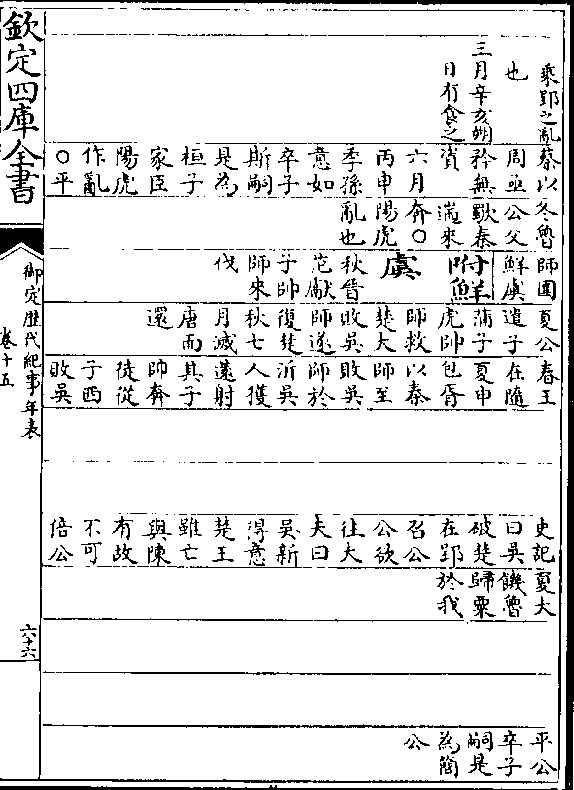 乘郢之亂
也
三月辛亥朔
日有食之
蔡以
周亟
矜無
資
六月
丙申
季孫
意如
卒子
斯嗣
是為
桓子
家臣
陽虎
作亂
〇平
冬魯
公父
歜秦
遄來
奔〇
陽虎
亂也
師圍
鮮虞
附鮮
虞
秋晉
范獻
子帥
師來
伐
夏公
遣子
蒲子
虎帥
師救
楚大
敗吳
師遂
復楚
秋七
月滅
唐而
還
春王
在隨
夏申
包胥
以秦
師至
敗吳
師於
沂吳
人獲
薳射
其子
帥奔
徒從
子西
敗吳
史記
曰吳
破楚
在郢
召公
公欲
往大
夫曰
吳新
得意
楚王
雖亡
與陳
有故
不可
倍公
夏大
饑魯
歸粟
於我
平公
卒子
嗣是
為簡
公
欽定四庫全書
御定歷代紀事年表
卷十五
六十六